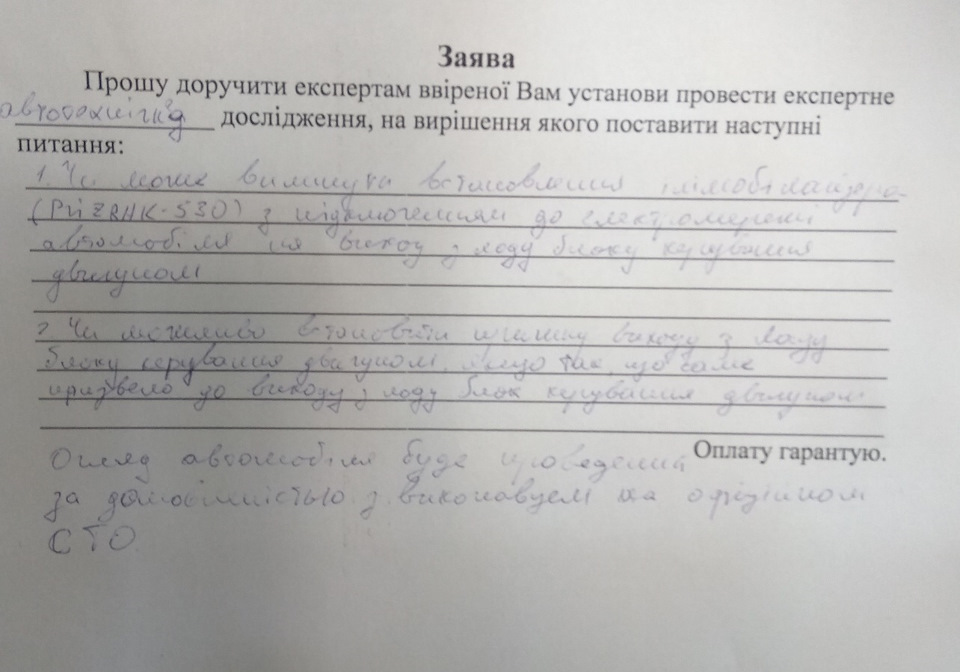 Заява
Прошу доручити експертам ввіреної Вам установи провести експертне
дослідження, на вирішення якого поставити наступні
питання:
1. Чи може встановлення
(PRIZRAK-530) з підключенням до електромережі
автомобіля на вихід з ладу блоку керування
двигуном
2. Чи можливо встановити причину виходу з ладу
блоку керування двигуном, якщо так, що саме
призвело до виходу з ладу блок керування двигуном
Оплату гарантую.
Огляд автомобіля буде проведений
за домовленістью з виконавцем на офіційном
СТО